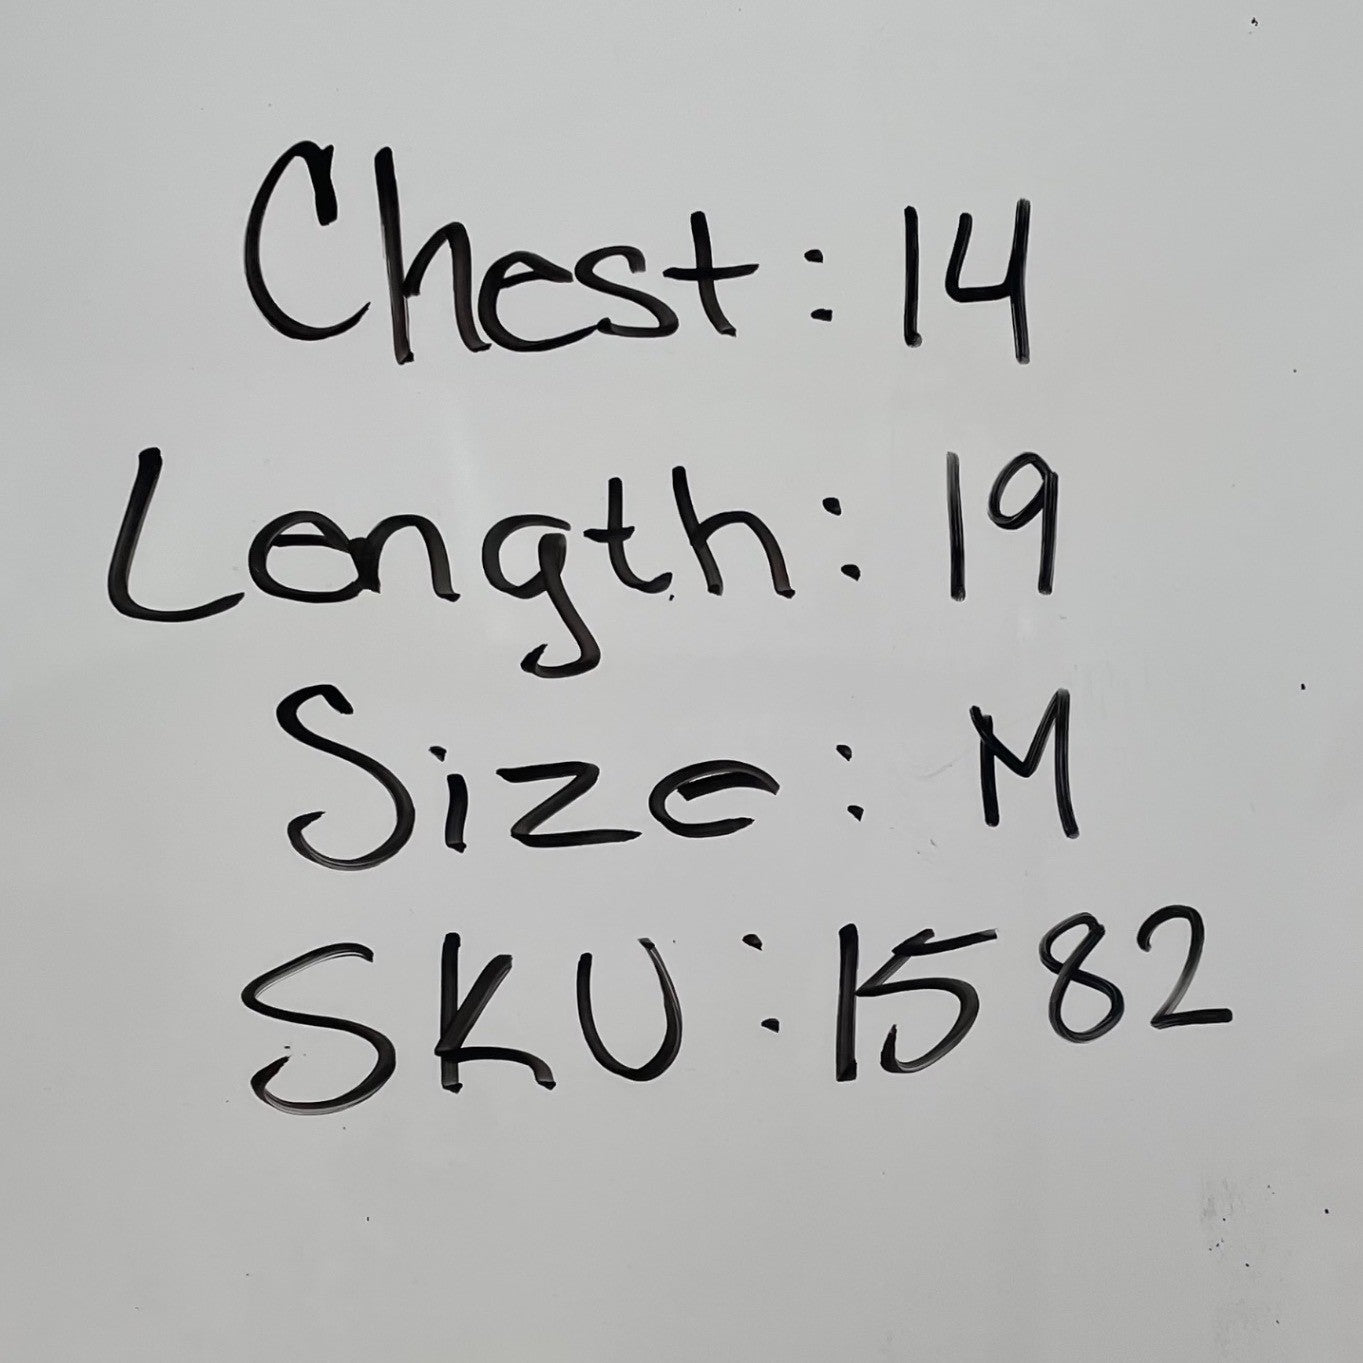 Chest: 14
Length: 19
Size: M
SKU: 1582